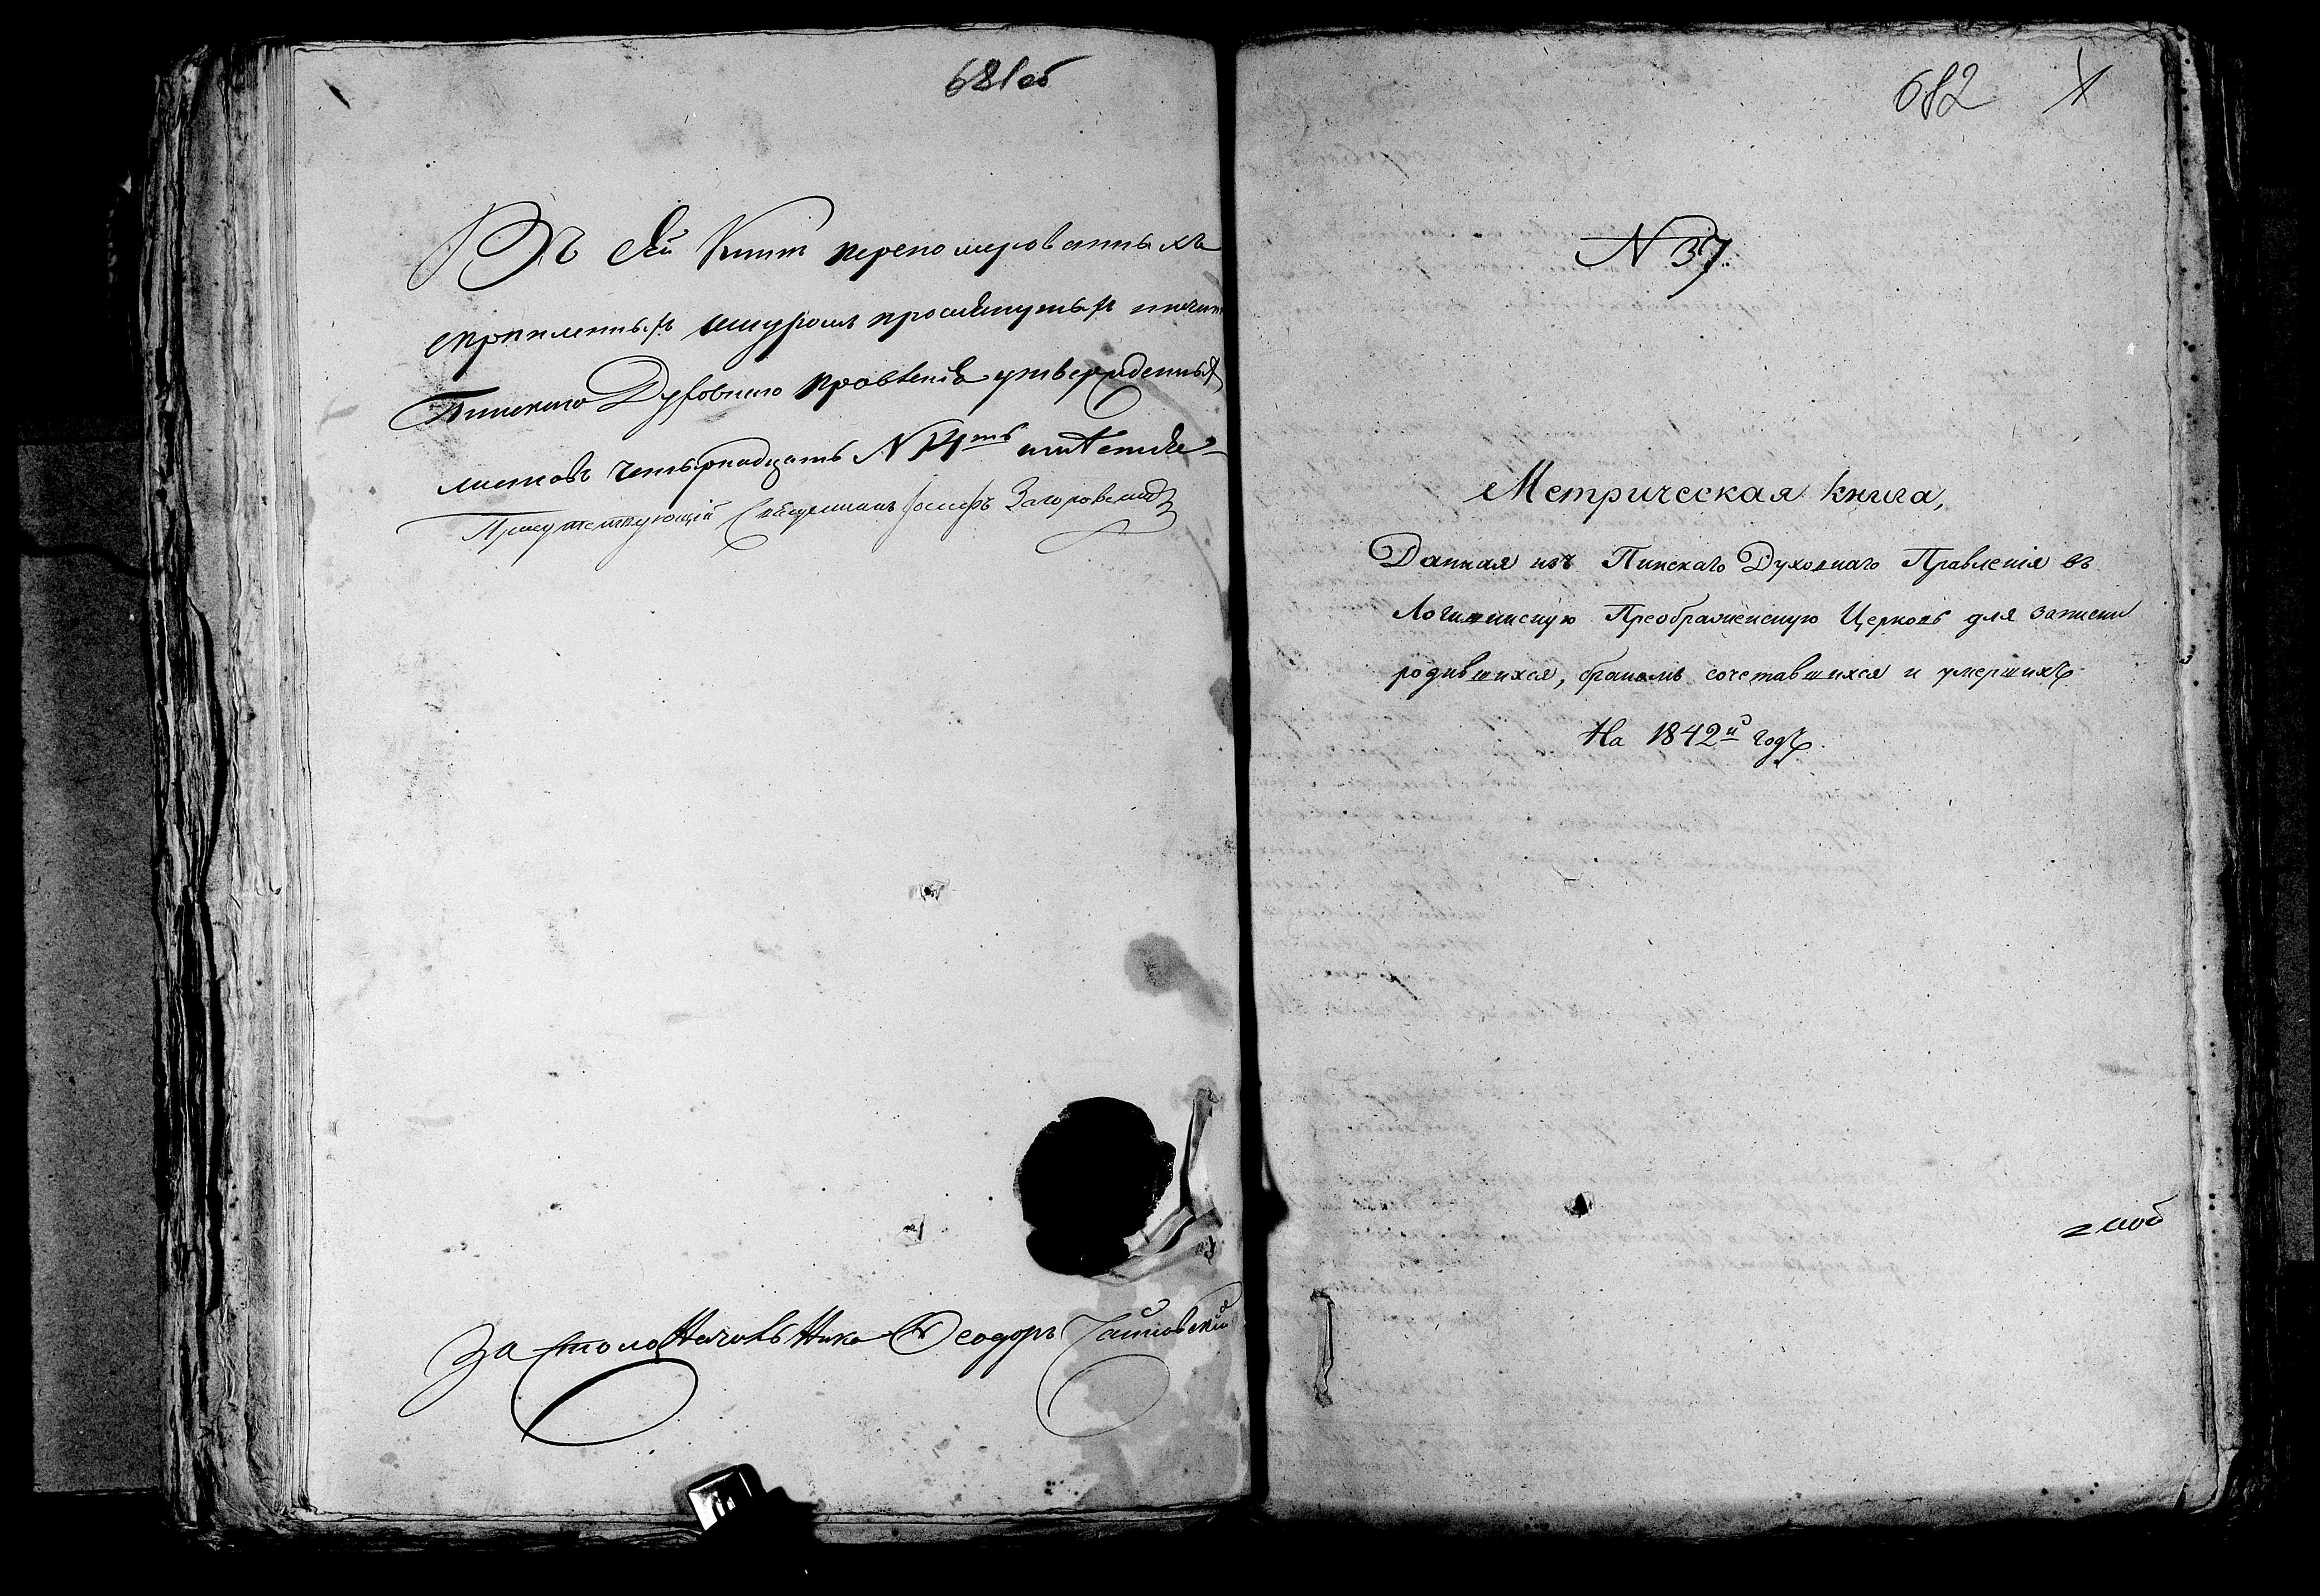 681 об
Въ сей Книг перепомерованныхъ
скрепленныхъ шнуромъ просшнутыхъ
Пинскаго Духовнаго правленія утвержденныхъ
листовъ четырнадцать N 14ть
Присутствующій Священникъ Іосифъ Загоровскій
За столоНачальНика Ѳеодоръ
682
N 37.
Метрическая книга,
Данная изъ Пинскаго Духовнаго Правленія въ
Логишинскую Преображенскую Церковь для записки
родившихся, бракомъ сочетавшихся и умершихъ
На 1842й годъ.